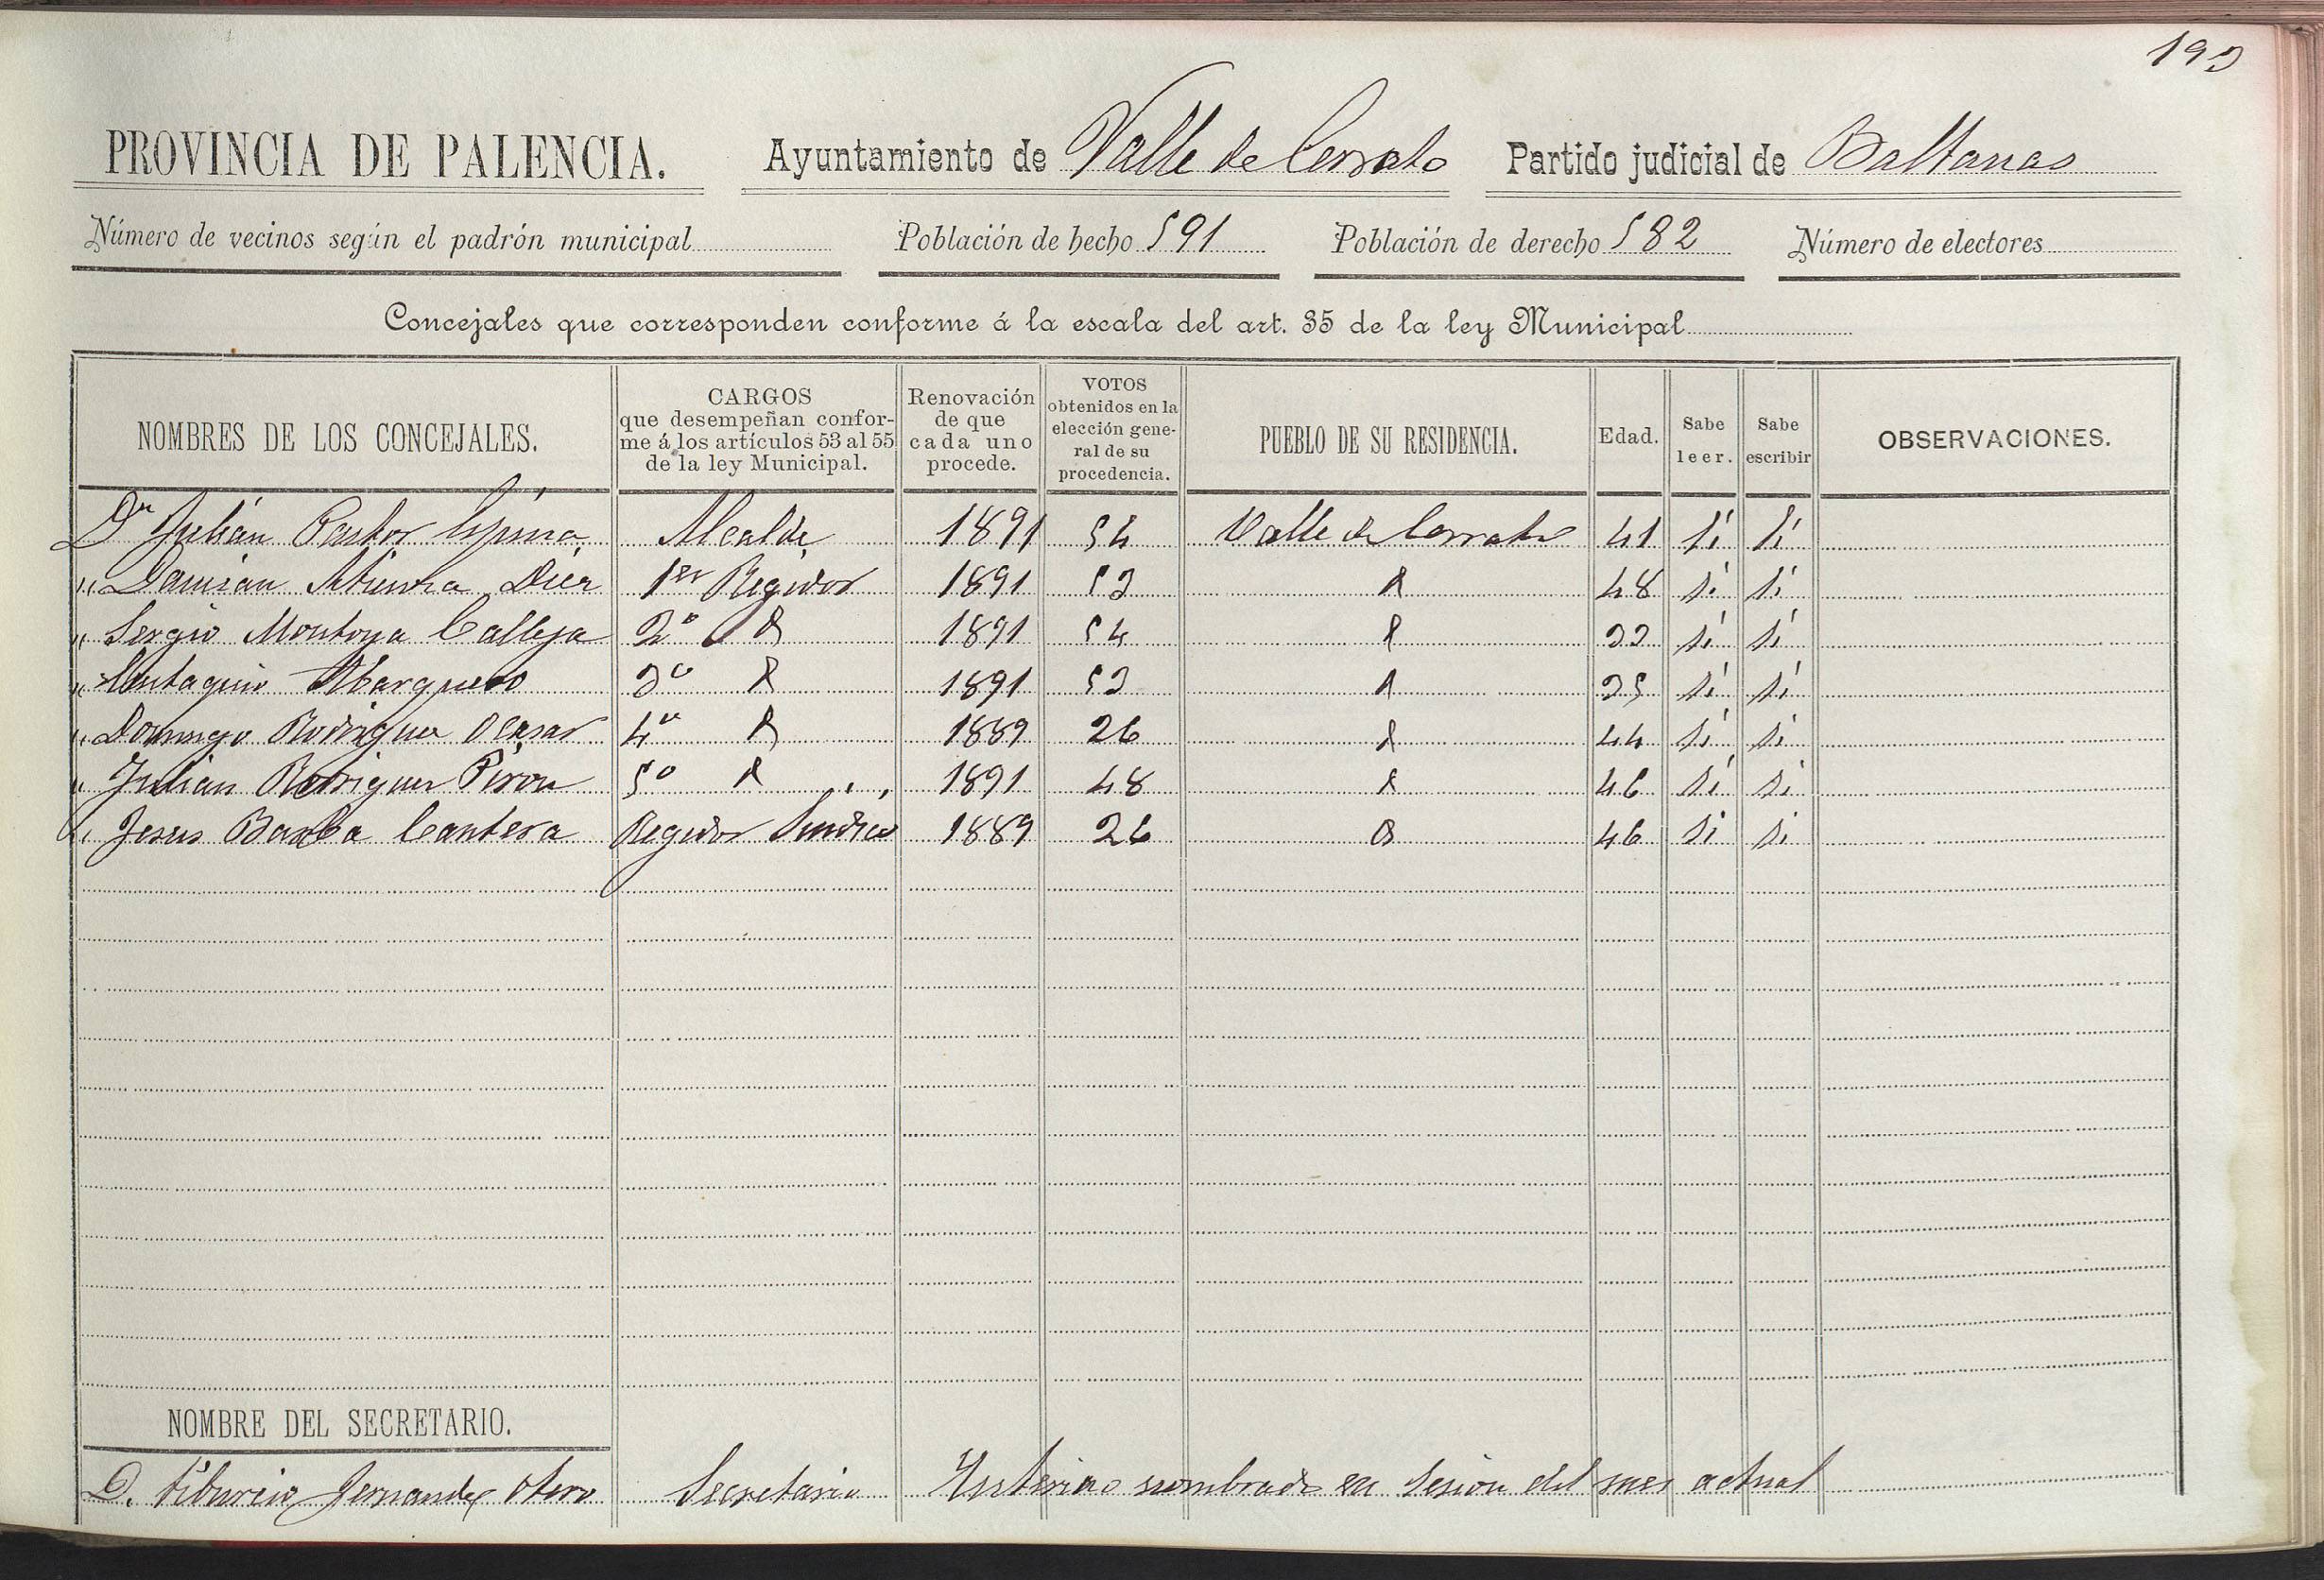 193
PROVINCIA DE PALENCIA. Ayuntamiento de Valle de Cerrato Partido judicial de Baltanas
Número de vecinos según el padrón municipal Población de hecho 591 Población de derecho 582 Número de electores
Concejales que corresponden conforme á la escala del art. 35 de la ley Municipal
NOMBRES DE LOS CONCEJALES. CARGOS que desempeñan confor-me á los artículos 53 al 55 de la ley Municipal. Renovación de que cada uno procede. VOTOS obtenidos en la elección gene-ral de su procedencia. PUEBLO DE SU RESIDENCIA. Edad. Sabe leer. Sabe escribir OBSERVACIONES.
Dn Julián Pastor Espina Alcalde 1891 54 Valle de Cerrato 41 sí sí
" Damian Atienza Diez 1er Regidor 1891 53 48 sí sí
" Sergio Montoya Calleja 2º 1891 54 33 sí sí
" Eustaquio Abarquero 3º 1891 53 35 sí sí
" Domingo Rodriguez 4º 1889 26 44 sí si
" Julian Rodriguez Piron 5º 1891 48 46 sí si
" Jesus Barba Cantera Regidor Sindico 1889 26 46 si si
NOMBRE DEL SECRETARIO.
D. Tiburcio Fernandez Otero Secretario Interino nombrado en sesion del mes actual